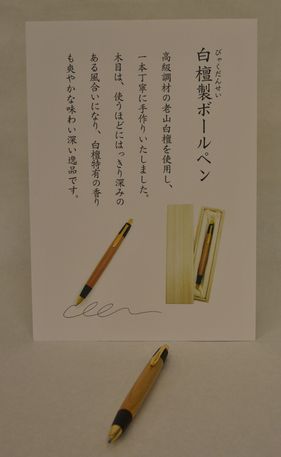 びゃくだんせい
白檀製ボールペン
高級調材の老山白檀を使用し、
一本丁寧に手作りいたしました。
木目は、使うほどにはっきり深みの
ある風合いになり、白檀特有の香り
も爽やかな味わい深い逸品です。